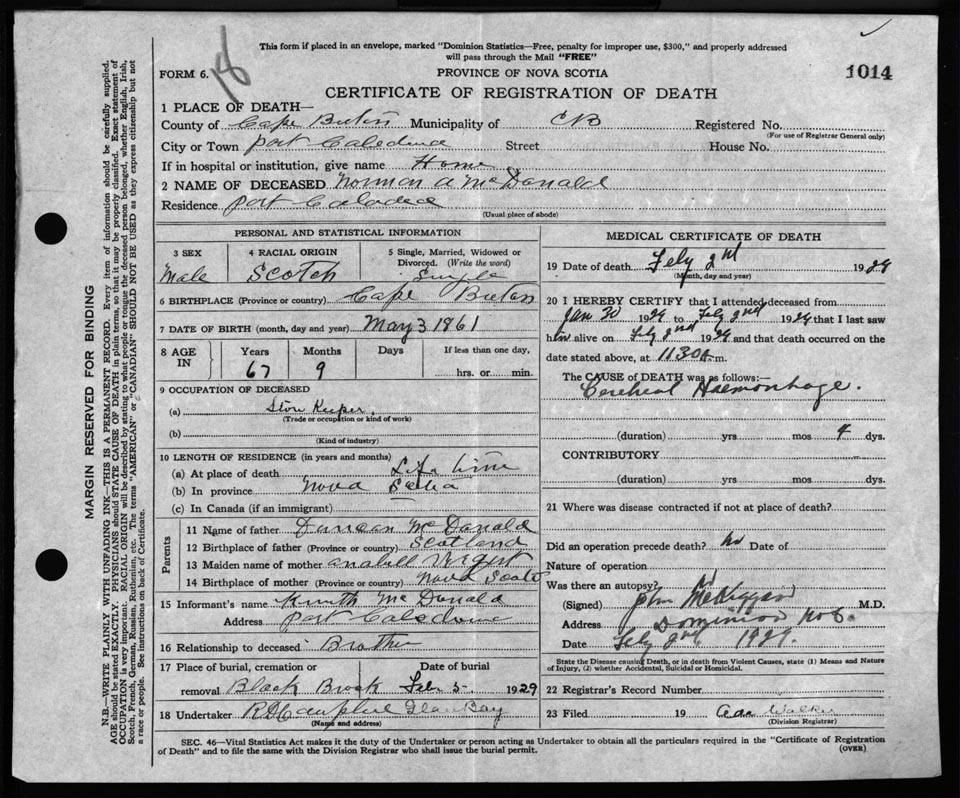 This form if placed in an envelope, marked "Dominion Statistics—Free, penalty for improper use, $300," and properly addressed
will pass through the Mail "FREE"
FORM 6.
18
PROVINCE OF NOVA SCOTIA
1014
CERTIFICATE OF REGISTRATION OF DEATH
1 PLACE OF DEATH—
County of Cape Breton Municipality of CB Registered No.
(For use of Registrar General only)
City or Town Port Caledonia Street House No.
If in hospital or institution, give name Home
2 NAME OF DECEASED Norman A McDonald
Residence Port
(Usual place of abode)
PERSONAL AND STATISTICAL INFORMATION
3 SEX 4 RACIAL ORIGIN 5 Single, Married, Widowed or
Divorced. (Write the word)
Male Scotch Single
6 BIRTHPLACE (Province or country) Cape Breton
7 DATE OF BIRTH (month, day and year) May 3 1861
8 AGE IN Years Months Days If less than one day,
67 9 hrs. or min.
9 OCCUPATION OF DECEASED
(a) Store Keeper
(Trade or occupation or kind of work)
(b)
(Kind of industry)
10 LENGTH OF RESIDENCE (in years and months)
(a) At place of death Life time
(b) In province Nova Scotia
(c) In Canada (if an immigrant)
Parents
11 Name of father Duncan McDonald
12 Birthplace of father (Province or country) Scotland
13 Maiden name of mother
14 Birthplace of mother (Province or country) Nova Scotia
15 Informant's name McDonald
Address Port Caledonia
16 Relationship to deceased Brother
17 Place of burial, cremation or Date of burial
removal Black Brook Feb 5 1929
18 Undertaker Glace Bay
(Name and address)
MEDICAL CERTIFICATE OF DEATH
19 Date of death Feby 2nd 1929
(Month, day and year)
20 I HEREBY CERTIFY that I attended deceased from
Jan 30 1929 to Feby 2nd 1929 that I last saw
him alive on Feby 2nd 1929 and that death occurred on the
date stated above, at 11 30 A m.
The CAUSE of DEATH was as follows:—
Cerebral Haemorrhage.
(duration) yrs mos 4 dys.
CONTRIBUTORY
(duration) yrs mos dys.
21 Where was disease contracted if not at place of death?
Did an operation precede death? No Date of
Nature of operation
Was there an autopsy? No
(Signed) John M.D.
Address Dominion No 6.
Date Feby 2nd 1929.
State the Disease causing Death, or in death from Violent Causes, state (1) Means and Nature
of Injury, (2) whether Accidental, Suicidal or Homicidal.
22 Registrar's Record Number
23 Filed 19 Walker
(Division Registrar)
SEC. 46—Vital Statistics Act makes it the duty of the Undertaker or person acting as Undertaker to obtain all the particulars required in the "Certificate of Registration
of Death" and to file the same with the Division Registrar who shall issue the burial permit.
(OVER)
MARGIN RESERVED FOR BINDING
N.B.—WRITE PLAINLY WITH UNFADING INK—THIS IS A PERMANENT RECORD. Every item of information should be carefully supplied.
AGE should be stated EXACTLY. PHYSICIANS should STATE CAUSE OF DEATH in plain terms, so that it may be properly classified. Exact statement of
OCCUPATION is very important. RACIAL ORIGIN will be described by stating to what people or tongue the deceased person belonged, whether English, Irish,
Scotch, French, German, Russian, Ruthenian, etc. The terms "AMERICAN" or "CANADIAN" SHOULD NOT BE USED as they express citizenship but not
a race or people. See instructions on back of Certificate.